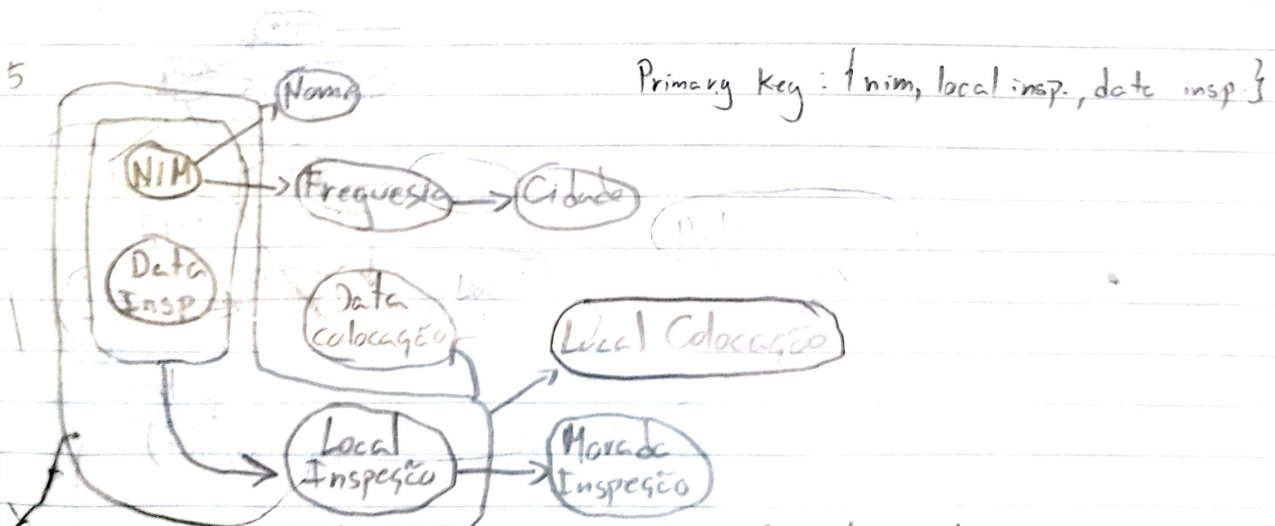 5
Primary Key : {nim, local insp., data insp }
Nome
NIM
Freguesia
Cidade
Data
Insp
Data
colocação
Local Colocação
Local
Inspeção
Morada
Inspeção